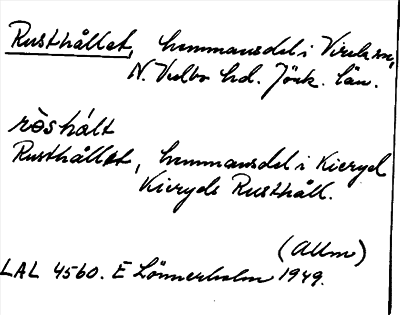 Rusthållet, hemmansdel i Vireda sn,
N. Vedbo hd. Jönk. län.
ròshált
Rusthållet, hemmansdel i Kieryd
Kieryds Rusthåll.
(Allm)
LAL 4560. E Lönnerholm 1949.